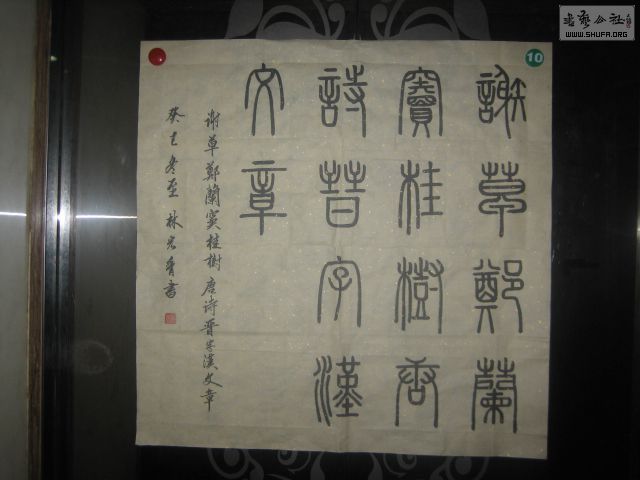 書藝公社
WWW.SHUFA.ORG
10
謝草鄭蘭
竇桂樹唐
詩晉字漢
文章
谢草鄭蘭窦桂樹唐诗晋字漢文章
癸巳冬至 林書